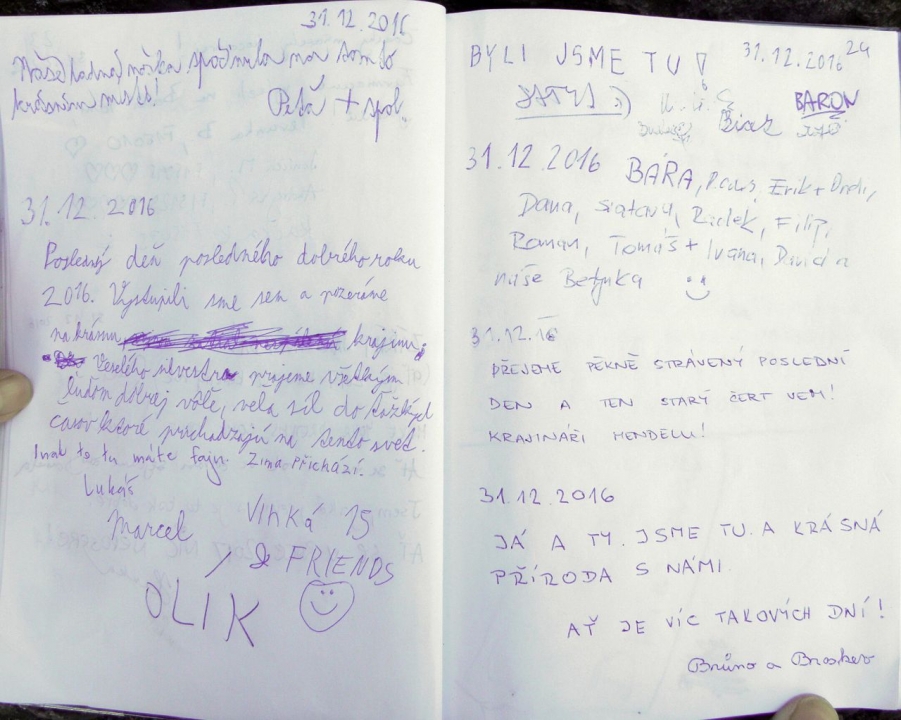 31.12.2016
Naše ladná nôžka spočinula na tomto
krásném místě!
Peťa + spol.
31.12 2016
Posledný deň posledného dobrého roku
2016. Vystúpili sme sem a pozeráme
na krásnu krajinu,
Veselého silvestra prajeme všetkým
ľuďom dobrej vôle, vela síl do ťažkých
casov ktoré prichádzajú na tento svet.
Inak to tu máte fajn. Zima přichází.
Lukáš
Marcel
Vlhká 15
& FRIENDS
OLIK
BYLI JSME TU!
31.12.2016
24
BARON
31.12.2016 BÁRA, Erik +
Dana, Radek, Filip,
Roman, Tomáš + Ivana, David a
naše Betynka
31.12.16
PŘEJEME PĚKNĚ STRÁVENÝ POSLEDNÍ
DEN A TEN STARÝ ČERT VEM!
KRAJINÁŘI MENDELU!
31.12.2016
JÁ A TY. JSME TU. A KRÁSNÁ
PŘÍRODA S NÁMI.
AŤ JE VÍC TAKOVÝCH DNÍ!
Brůno a